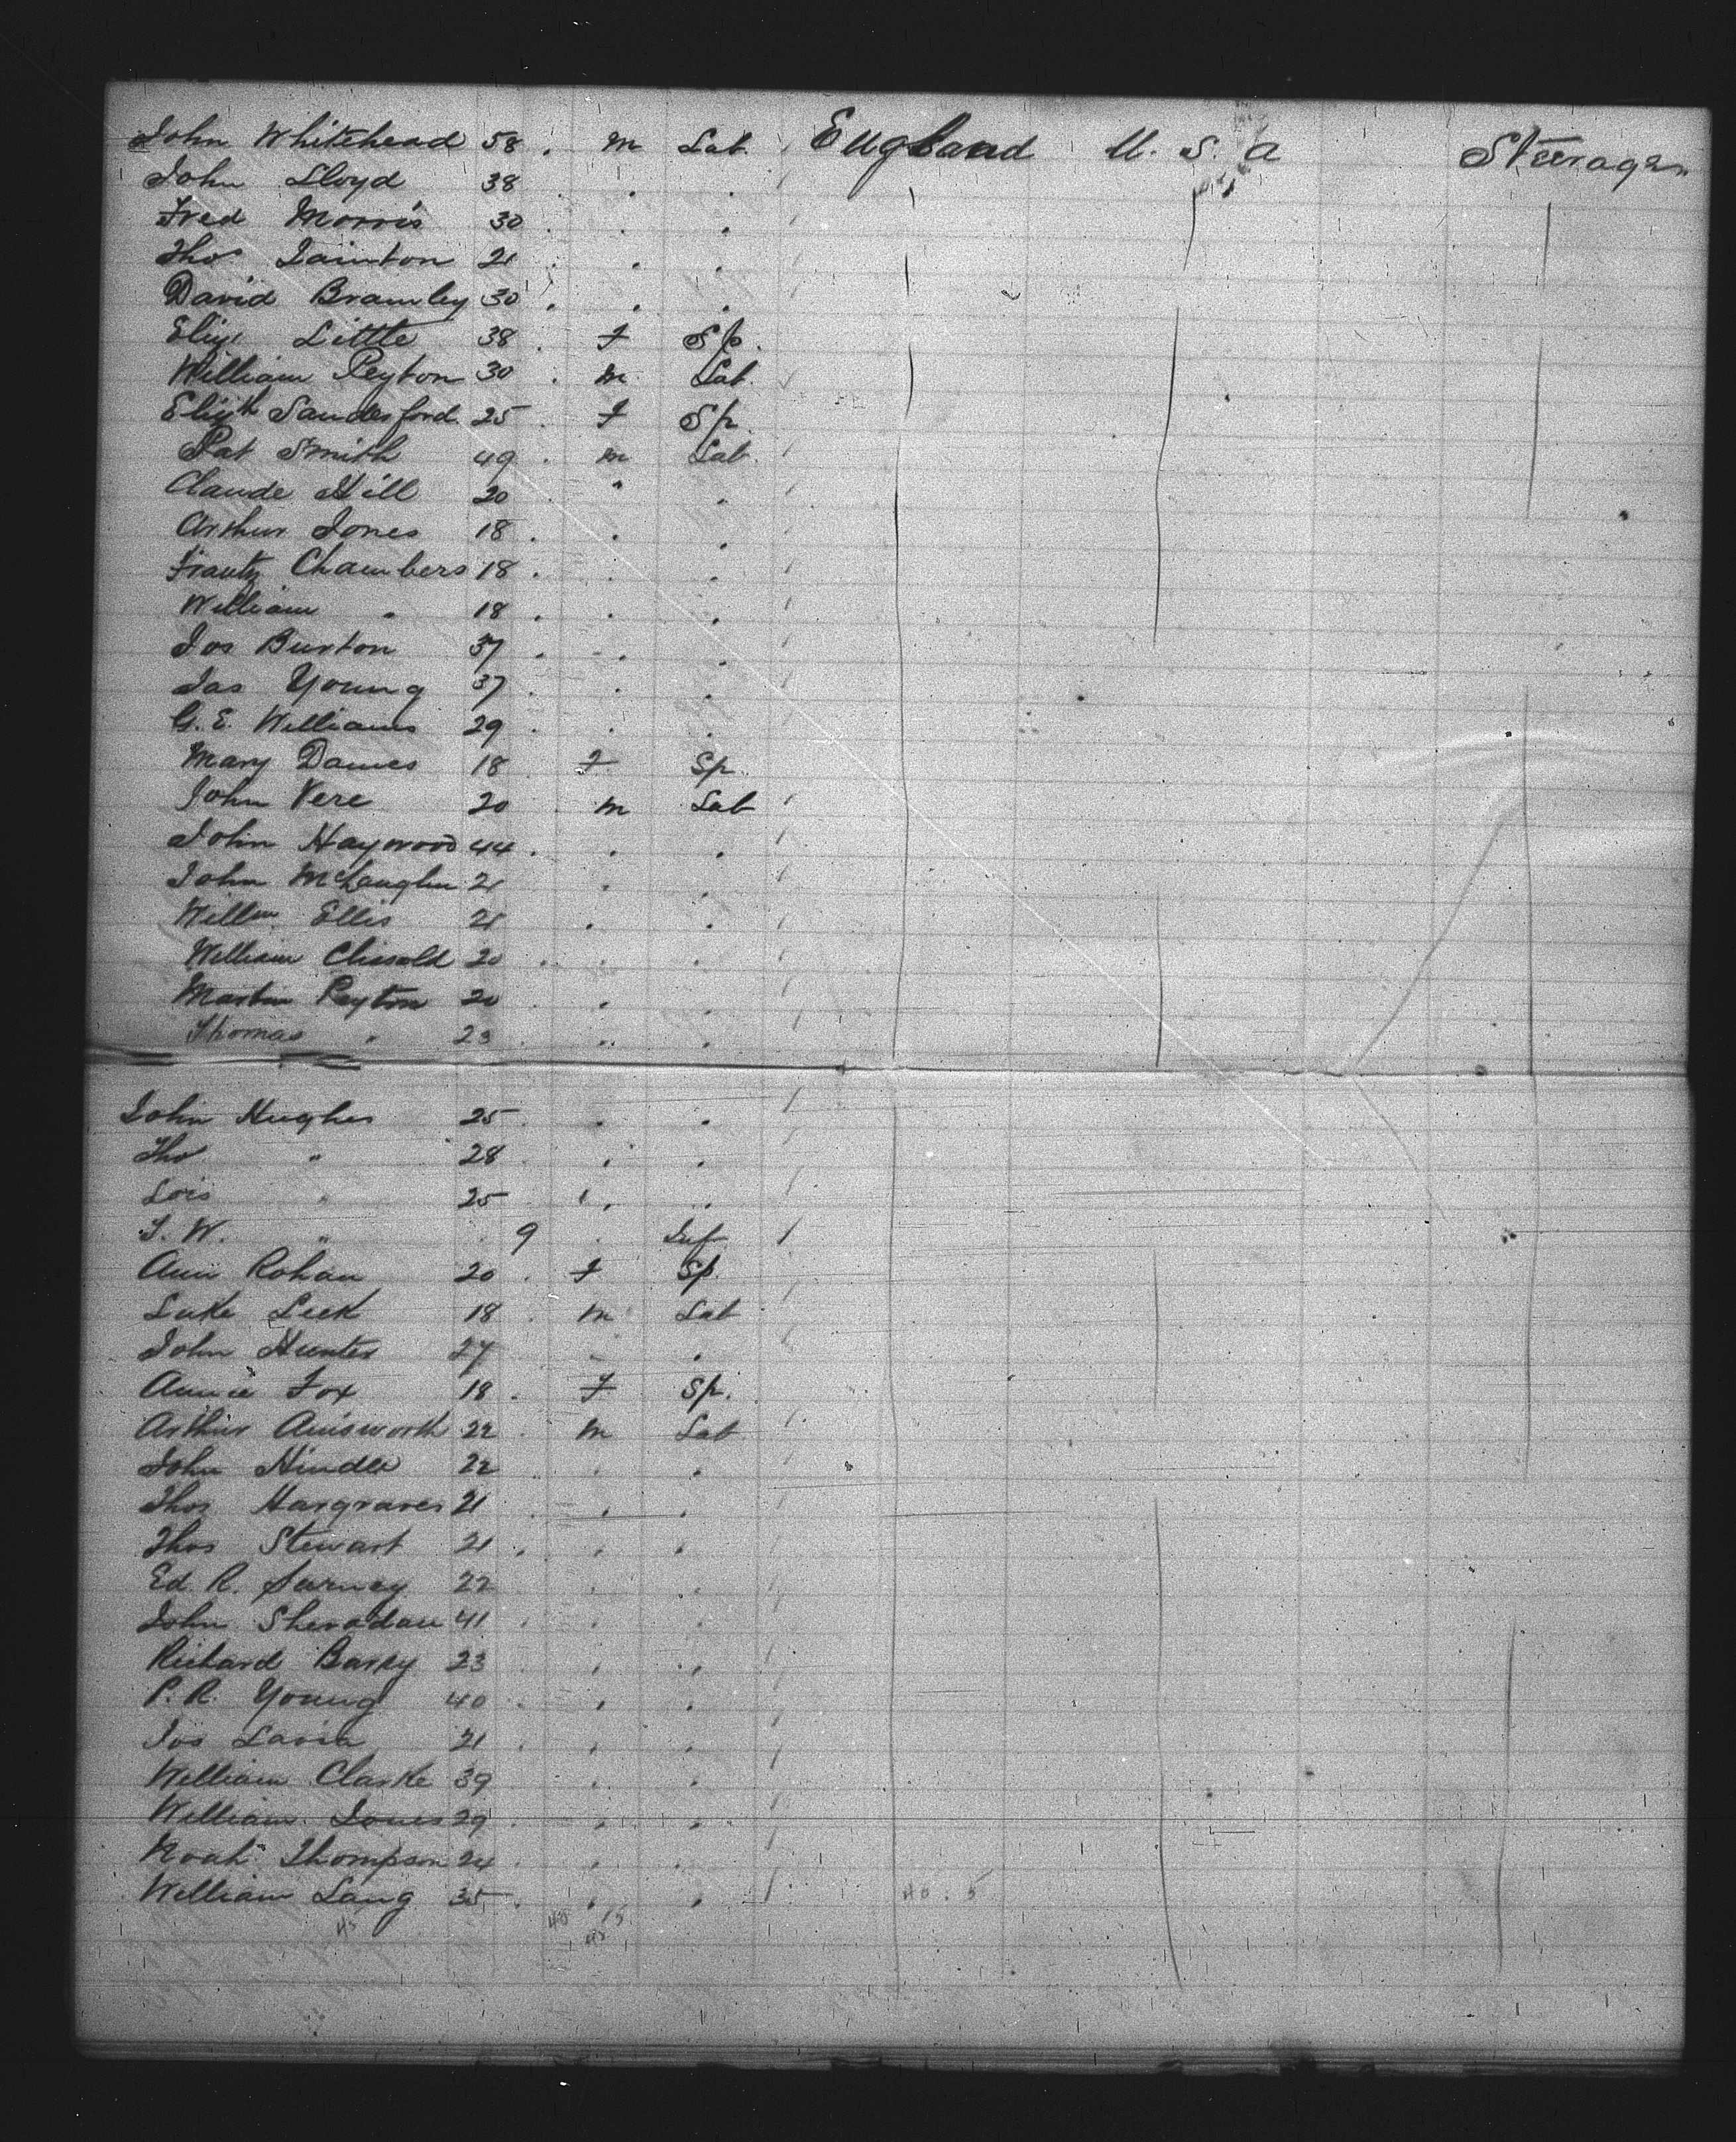 John Whitehead 58 . m Lab. England U. S. a Steerage
John Lloyd 38 . . .
Fred Morris 30 . . .
Thos Tainton 21 . . .
David Bramley 30 . . .
Eliz Little 38 . f Sp.
William Peyton 30 . m Lab.
Elizth Sandesford 25 . f Sp.
Pat Smith 49 . m Lab.
Claude Hill 20 . " .
Arthur Jones 18 . . .
Frantz Chambers 18 . . .
William " 18 . . .
Jos Burton 37 . . .
Jas Young 37 . . .
G. E. Williams 29 . . .
Mary Dawes 18 f Sp.
John Vere 20 . m Lab
John Haywood 44 . . .
John McLaughlin 21 . .
Willm Ellis 21 . .
William Chissold 20 . . .
Martin Peyton 20 . . .
Thomas " 23 . .. .
John Hughes 25 . . .
Tho " 28 . . .
Lois " 25 . .
T. W. " 9 . Inf
Ann Rohan 20 . f Sp.
Luke Leek 18 . m Lab
John Hunter 27 . .
Annie Fox 18 . f Sp.
Arthur Ainsworth 22 . m Lab
John Hindle 22 . .
Thos Hargraves 21 . . .
Thos Stewart 21 . . .
Ed. R. 22 . .
John Sheradan 41 . . .
Richard Barry 23 . .
P. R. Young 40 . . .
Jos 21 . . .
William Clarke 39 . .
William Jones 29 . . .
Noah Thompson 24 . . .
William Lang 35 . . . 40 . 5
43 48 15
48